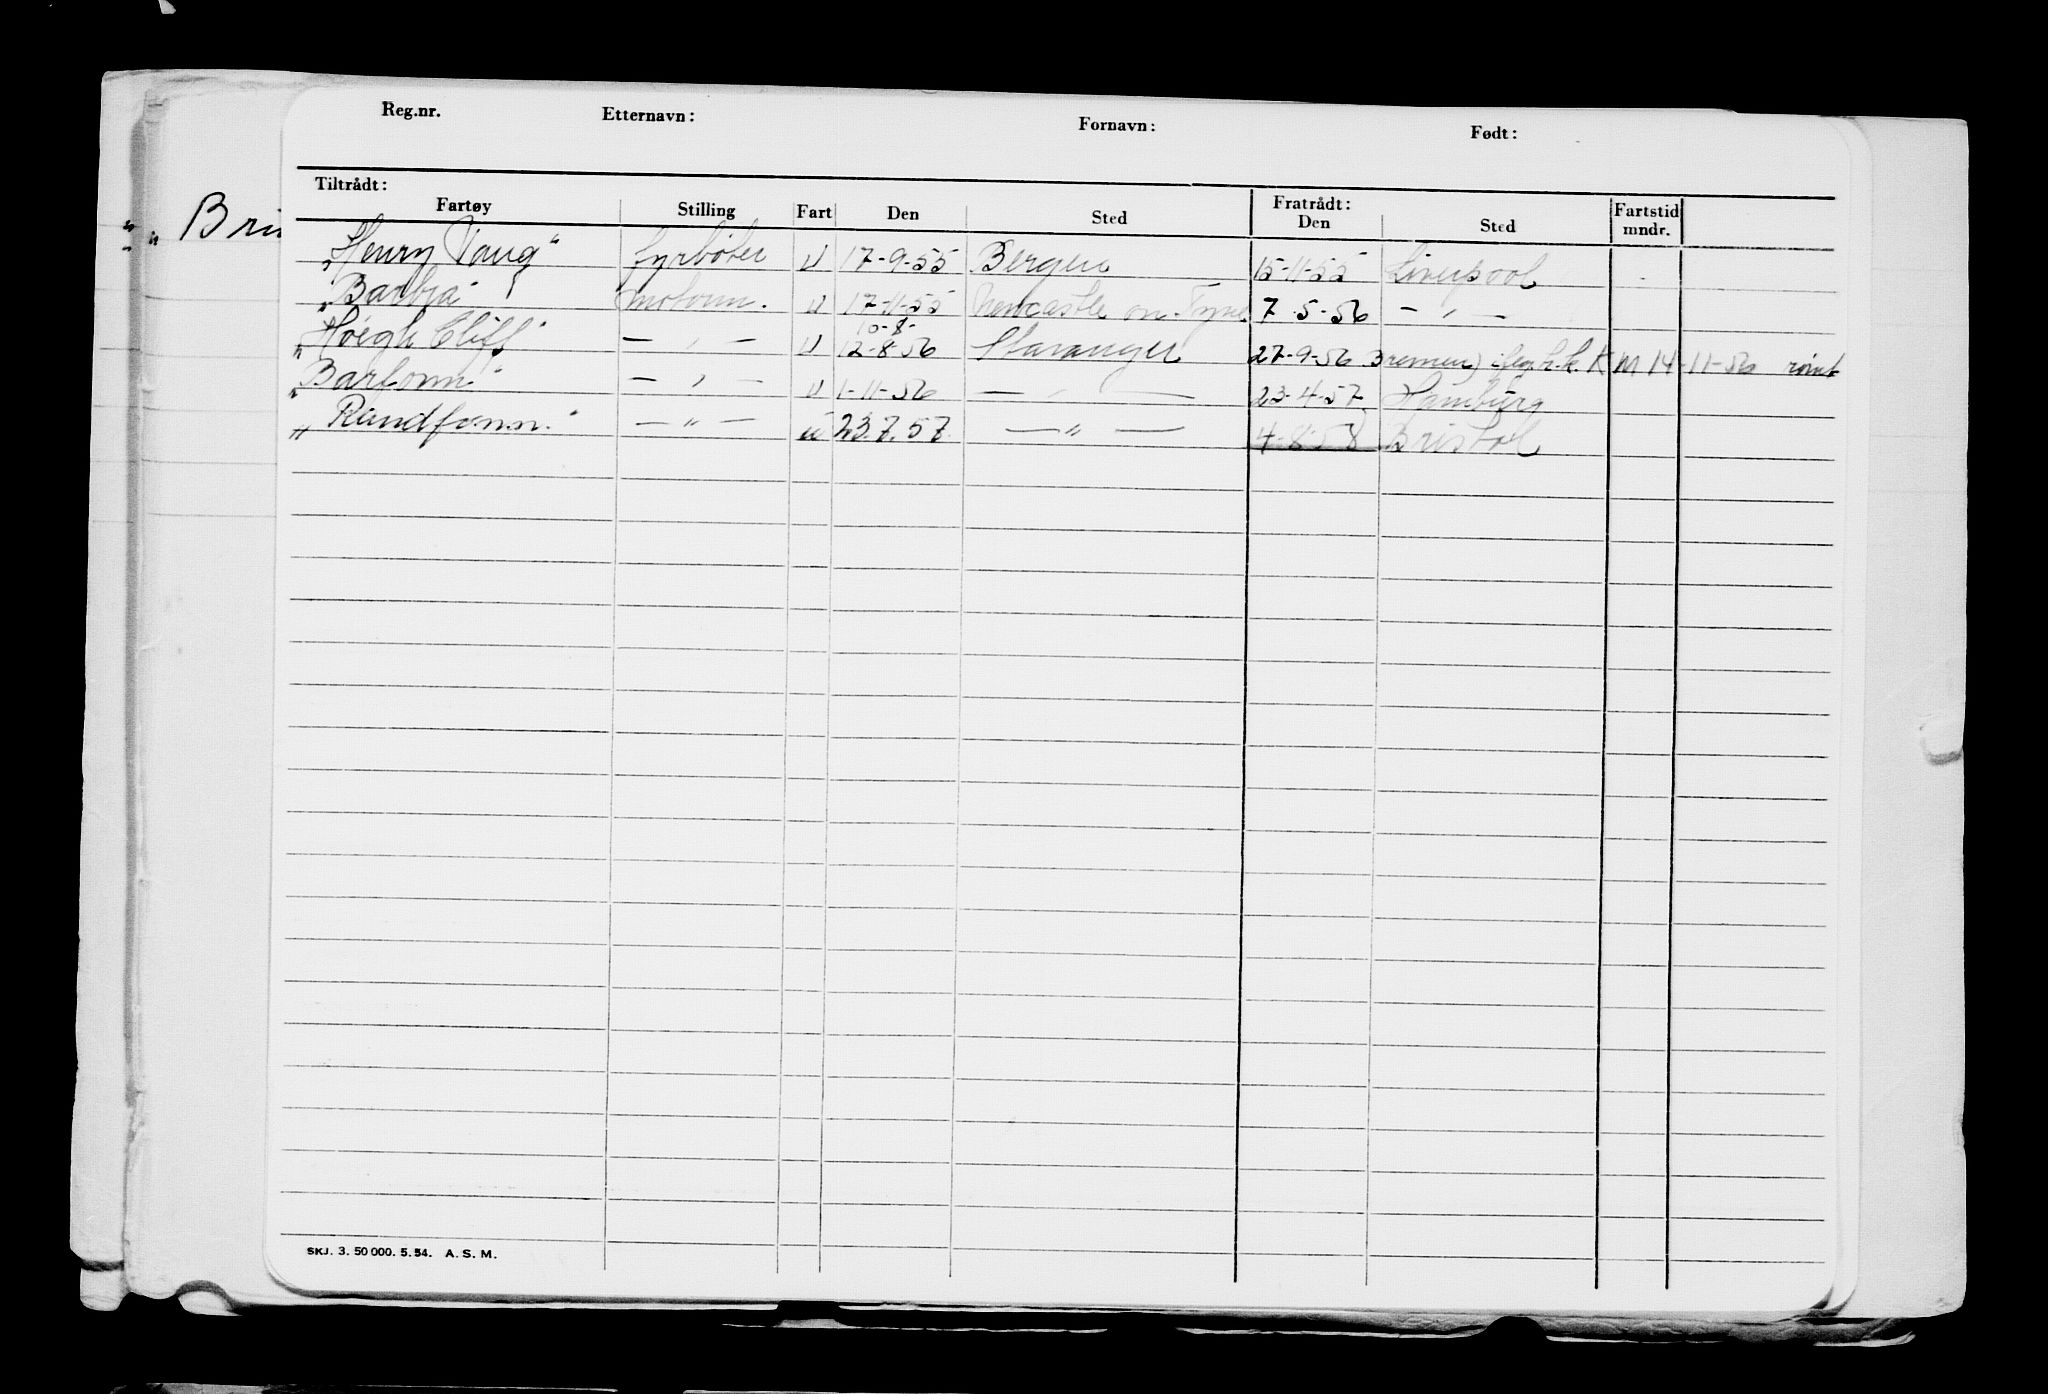 Reg.nr. Etternavn: Fornavn: Født:
Tiltrådt: Fratrådt:
Fartøy Stilling Fart Den Sted Den Sted Fartstid mndr.
" " Bri
"Henry Vaug" fyrbøter U 17-9-55 Bergen 15-11-55 Liverpool
"Barbra" motorm. U 17-11-55 Newcastle on Tyne 7-5-56 — " —
10-8-
"Høegh Cliff" — " — U 12-8-56 Stavanger 27-9-56 Bremen) K M 14-11-56 rømt
"Barfonn" — " — U 1-11-56 — " — 23-4-57 Hamburg
"Randfonn" — " — U 23.7.57. — " — 4-8-58 Bristol
SKJ. 3. 50 000. 5. 54. A. S. M.